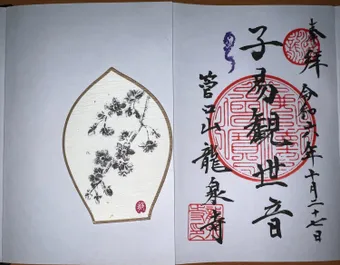 奉拝
令和六年十月二十七日
子易観世音
龍泉寺